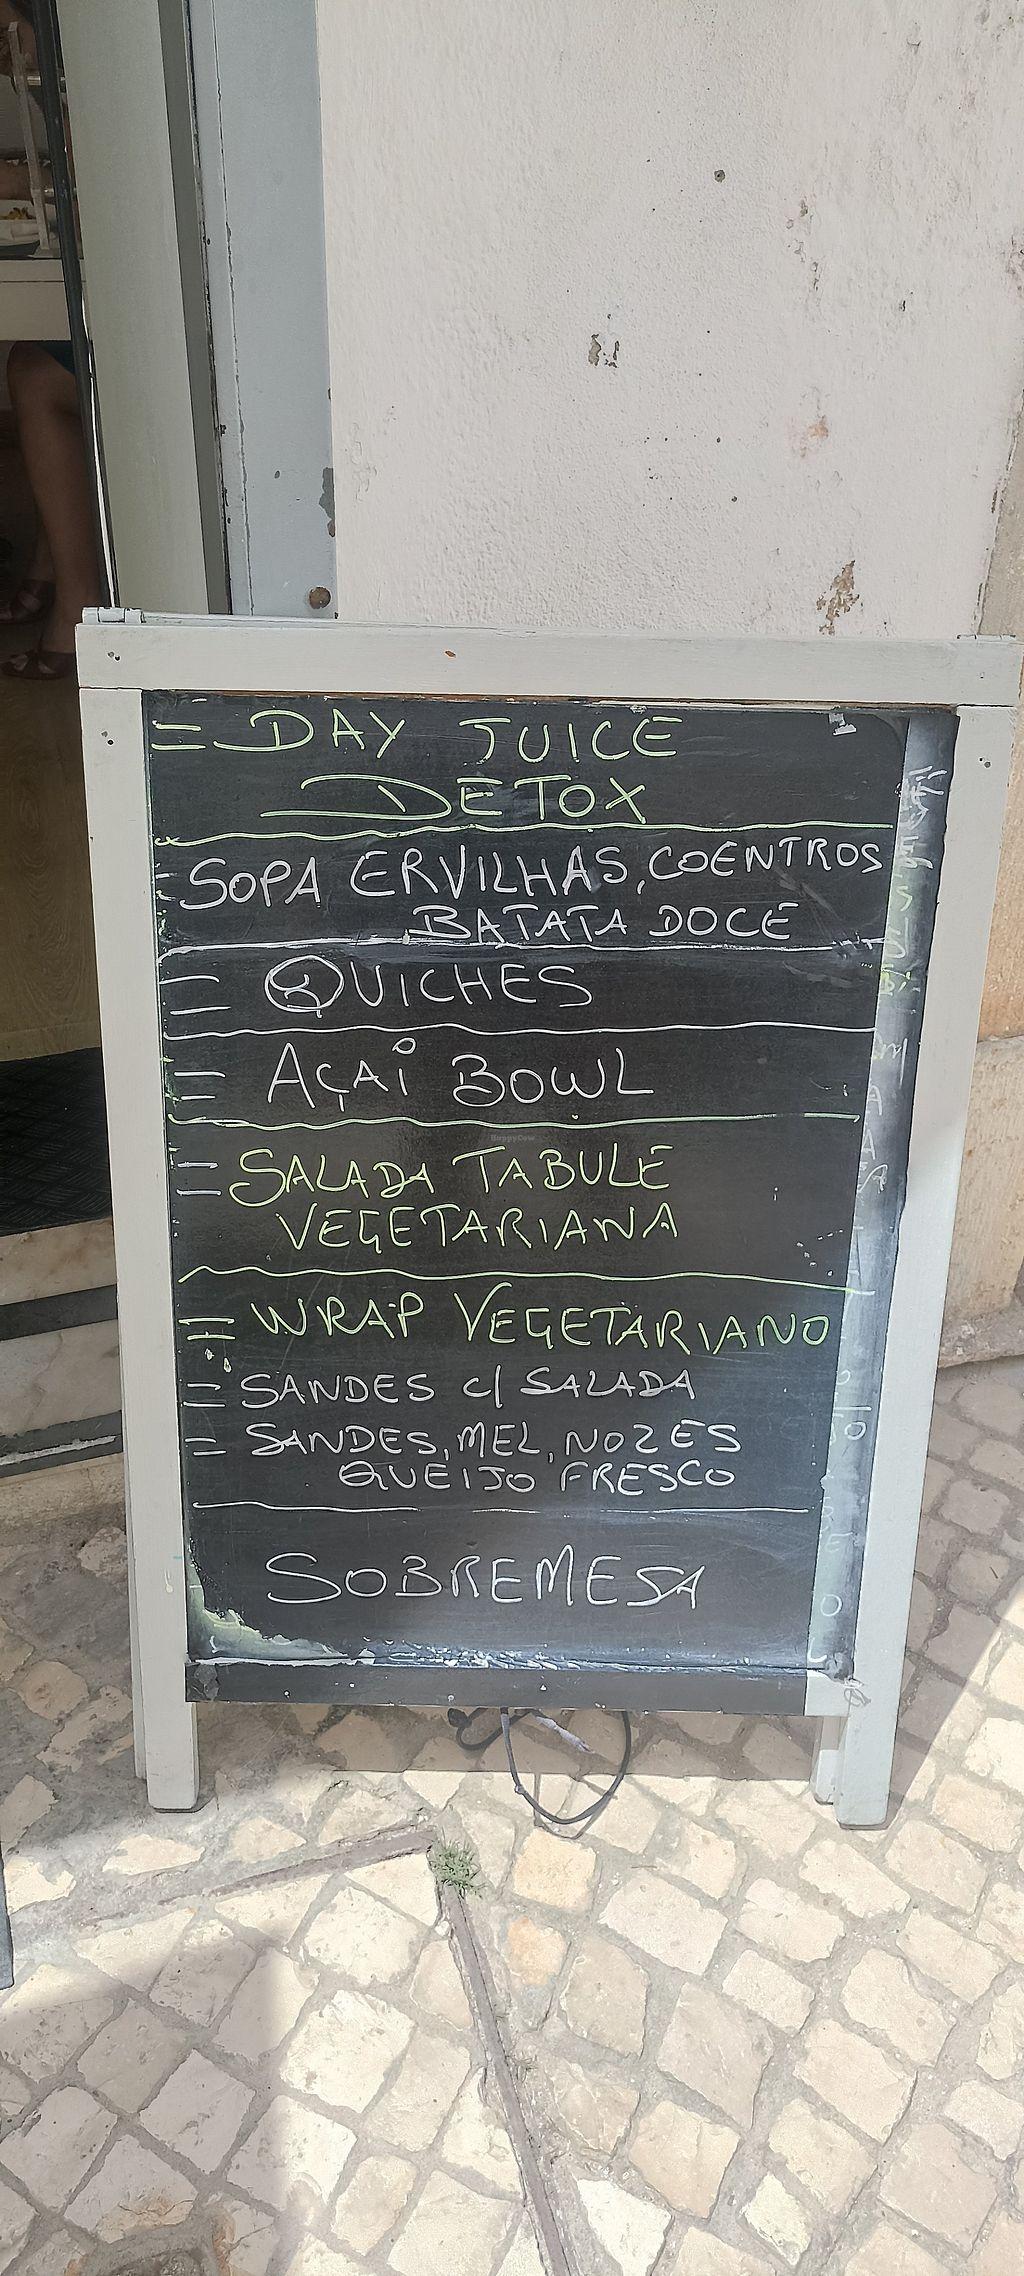 DAY JUICE
DETOX
SOPA ERVILHAS, COENTROS
BATATA DOCE
QUICHES
AÇAI BOWL
HappyCow
SALADA TABULE
VEGETARIANA
WRAP VEGETARIANO
SANDES C/ SALADA
SANDES, MEL, NOZES
QUEIJO FRESCO
SOBREMESA